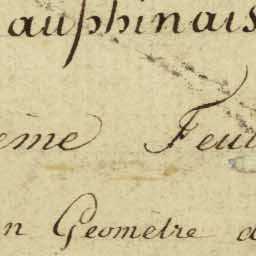 auphinais
eme Feui
n Geometre d